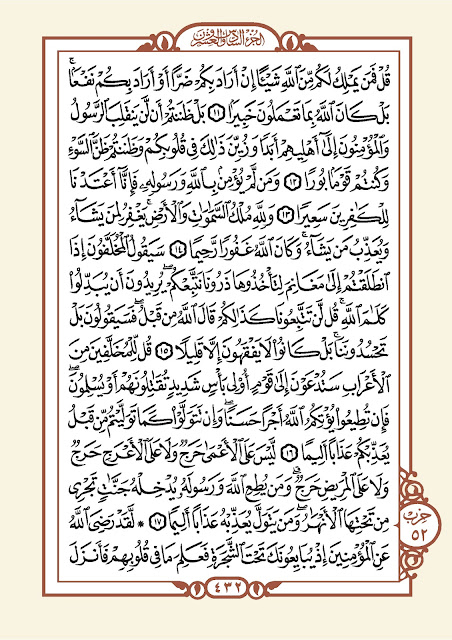 الجزء السادس والعشرون
قُلْ فَمَن يَمْلِكُ لَكُم مِّنَ ٱللَّهِ شَيْـًٔا إِنْ أَرَادَ بِكُمْ ضَرًّا أَوْ أَرَادَ بِكُمْ نَفْعَۢاۚ
بَلْ كَانَ ٱللَّهُ بِمَا تَعْمَلُونَ خَبِيرًا ١١ بَلْ ظَنَنتُمْ أَن لَّن يَنقَلِبَ ٱلرَّسُولُ
وَٱلْمُؤْمِنُونَ إِلَىٰٓ أَهْلِيهِمْ أَبَدًا وَزُيِّنَ ذَٰلِكَ فِى قُلُوبِكُمْ وَظَنَنتُمْ ظَنَّ ٱلسَّوْءِ
وَكُنتُمْ قَوْمًۢا بُورًا ١٢ وَمَن لَّمْ يُؤْمِنۢ بِٱللَّهِ وَرَسُولِهِۦ فَإِنَّآ أَعْتَدْنَا
لِلْكَٰفِرِينَ سَعِيرًا ١٣ وَلِلَّهِ مُلْكُ ٱلسَّمَٰوَٰتِ وَٱلْأَرْضِۚ يَغْفِرُ لِمَن يَشَآءُ
وَيُعَذِّبُ مَن يَشَآءُۚ وَكَانَ ٱللَّهُ غَفُورًا رَّحِيمًا ١٤ سَيَقُولُ ٱلْمُخَلَّفُونَ إِذَا
ٱنطَلَقْتُمْ إِلَىٰ مَغَانِمَ لِتَأْخُذُوهَا ذَرُونَا نَتَّبِعْكُمْۖ يُرِيدُونَ أَن يُبَدِّلُوا۟
كَلَٰمَ ٱللَّهِۚ قُل لَّن تَتَّبِعُونَا كَذَٰلِكُمْ قَالَ ٱللَّهُ مِن قَبْلُۖ فَسَيَقُولُونَ بَلْ
تَحْسُدُونَنَاۚ بَلْ كَانُوا۟ لَا يَفْقَهُونَ إِلَّا قَلِيلًا ١٥ قُل لِّلْمُخَلَّفِينَ مِنَ
ٱلْأَعْرَابِ سَتُدْعَوْنَ إِلَىٰ قَوْمٍ أُو۟لِى بَأْسٍ شَدِيدٍ تُقَٰتِلُونَهُمْ أَوْ يُسْلِمُونَۖ
فَإِن تُطِيعُوا۟ يُؤْتِكُمُ ٱللَّهُ أَجْرًا حَسَنًاۖ وَإِن تَتَوَلَّوْا۟ كَمَا تَوَلَّيْتُم مِّن قَبْلُ
يُعَذِّبْكُمْ عَذَابًا أَلِيمًا ١٦ لَّيْسَ عَلَى ٱلْأَعْمَىٰ حَرَجٌ وَلَا عَلَى ٱلْأَعْرَجِ حَرَجٌ
وَلَا عَلَى ٱلْمَرِيضِ حَرَجٌۗ وَمَن يُطِعِ ٱللَّهَ وَرَسُولَهُۥ يُدْخِلْهُ جَنَّٰتٍ تَجْرِى
مِن تَحْتِهَا ٱلْأَنْهَٰرُۖ وَمَن يَتَوَلَّ يُعَذِّبْهُ عَذَابًا أَلِيمًا ١٧ * لَّقَدْ رَضِىَ ٱللَّهُ
عَنِ ٱلْمُؤْمِنِينَ إِذْ يُبَايِعُونَكَ تَحْتَ ٱلشَّجَرَةِ فَعَلِمَ مَا فِى قُلُوبِهِمْ فَأَنزَلَ
حزب
٥٢
٤٣٢